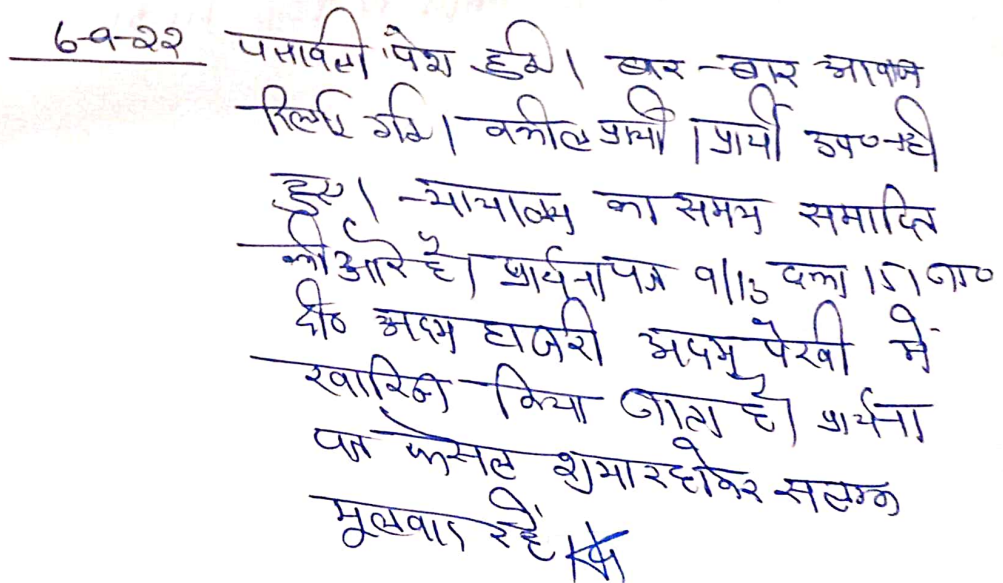 6-9-22 पत्रावली पेश हुई। बार-बार आवाज
दिलाई गई। वकील प्रार्थी/प्रार्थी उप० नहीं
हुए। न्यायालय का समय समाप्ति
की ओर है। प्रार्थना पत्र 9/13 दफा 151 जा०
दी० अदम हाजरी अदम पैरवी में
खारिज किया जाता है। प्रार्थना
पत्र फैसल शुमार होकर सलग्न
मूलवाद रहें।